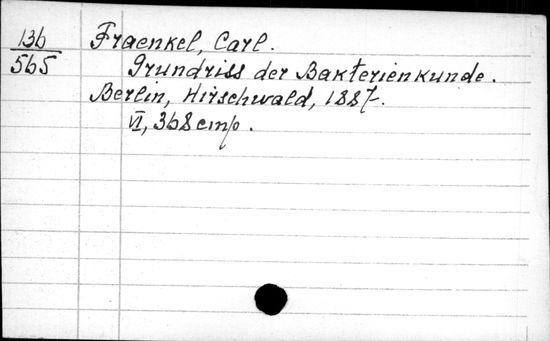 136
565
Fraenkel, Carl.
Grundriss der Bakterienkunde.
Berlin, Hirschwald, 1887.
VI, 368 стр.